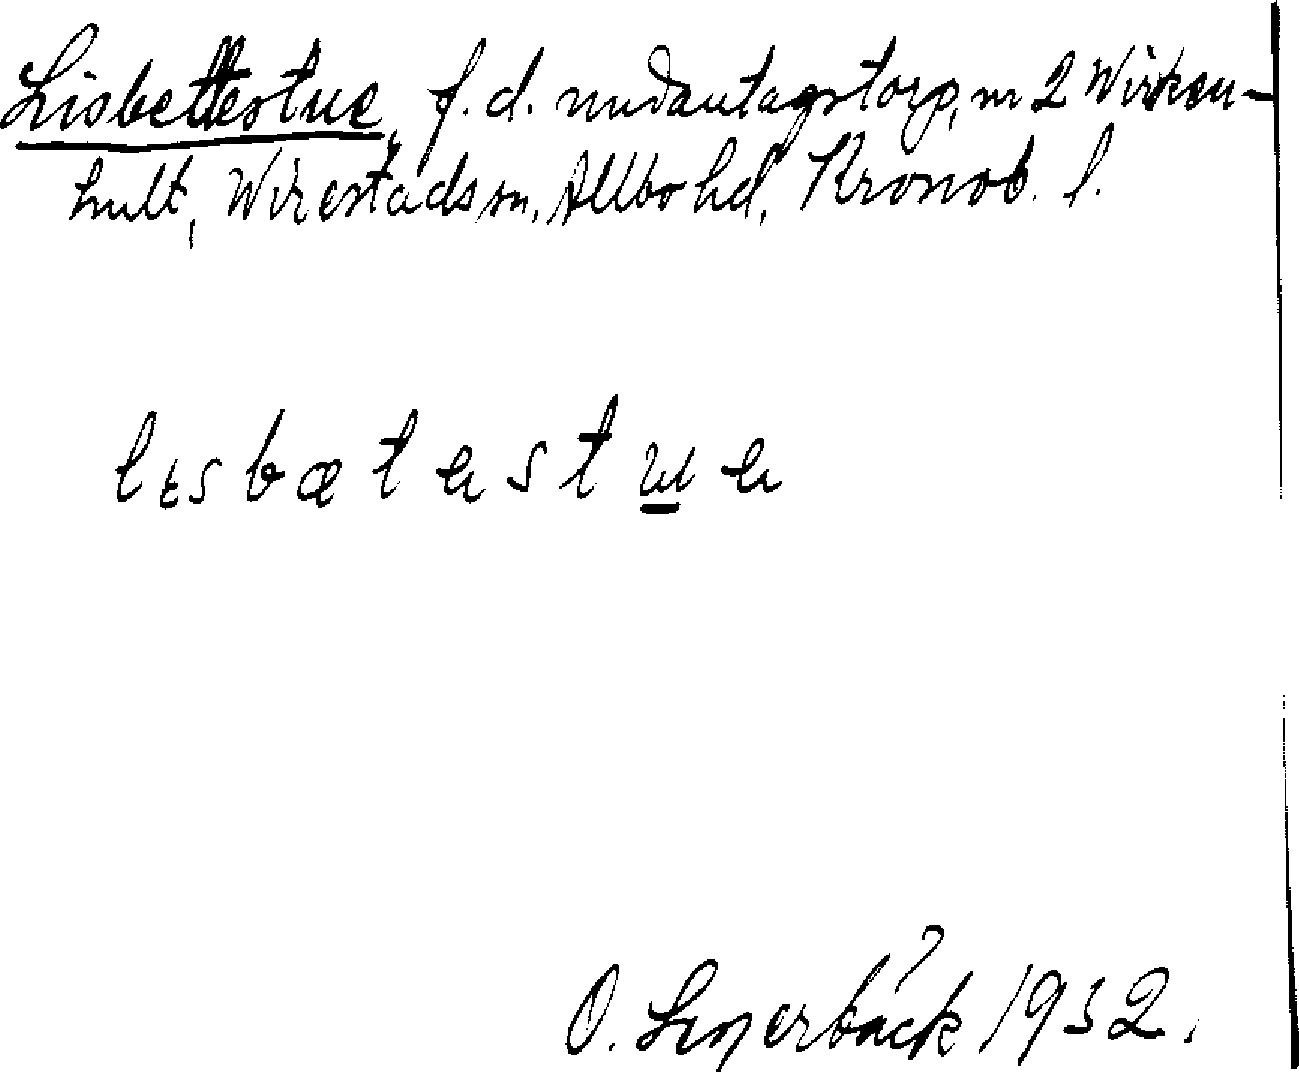 Lisbettestue, f. d. undantagstorp, nr 2 Wirken-
hult, Wirestads sn, Allbo hd, Kronob. l.
lɪsbætəstɯə
O. 1932.